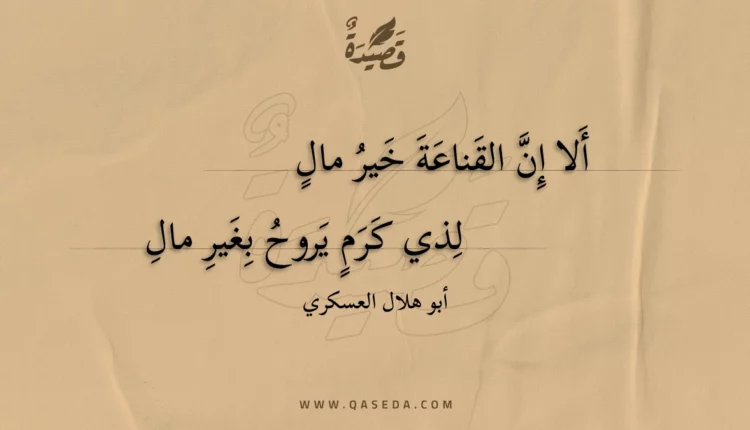 قَصِيدَةٌ
أَلا إِنَّ القَناعَةَ خَيرُ مالٍ
لِذي كَرَمٍ يَروحُ بِغَيرِ مالِ
أبو هلال العسكري
WWW.QASEDA.COM